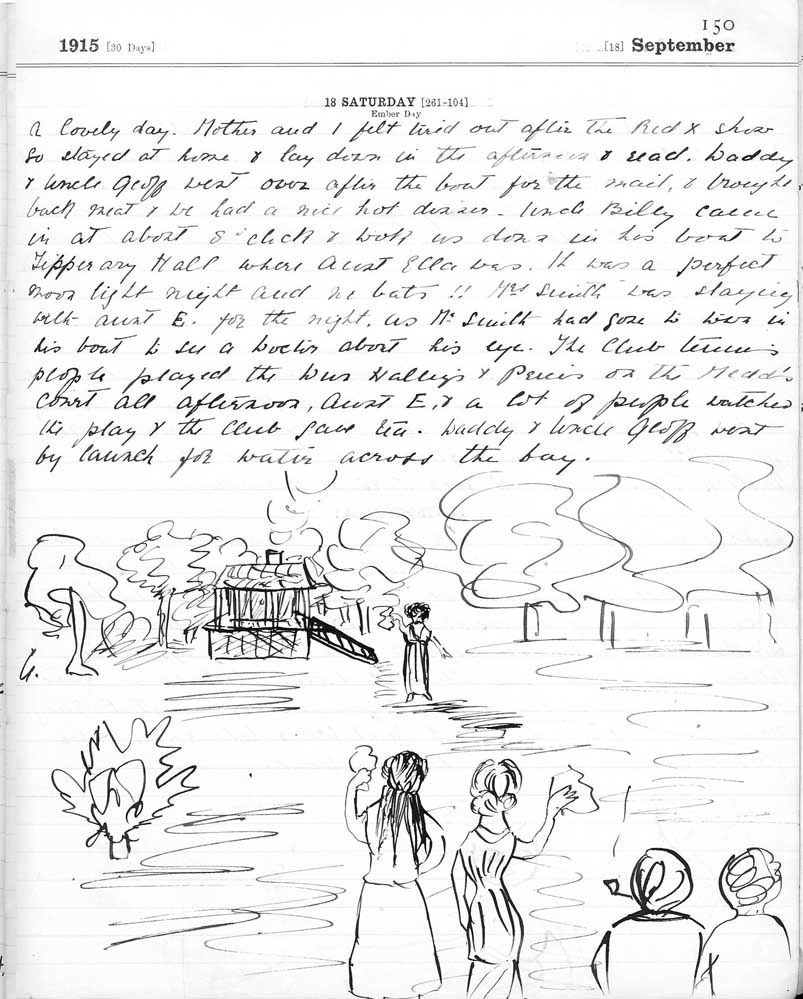 150
1915 [30 Days] [18] September
18 SATURDAY [261-104]
Ember Day
A lovely day. Mother and I felt tired out after the Red X show
so stayed at home & lay down in the afternoon & read. Daddy
& Uncle Geoff went over after the boat for the mail, & brought
back meat & we had a nice hot dinner. Uncle Billy came
in at about 8 o'clock & took us down in his boat to
Tipperary Hall where Aunt Ella was. It was a perfect
moon light night and no bats !! Mrs Smith was staying
with aunt E. for the night, as Mr Smith had gone to town in
his boat to see a Doctor about his eye. The Club tennis
people played the and on the
court all afternoon, Aunt E, & a lot of people watched
the play & the Club gave tea. Daddy & Uncle Geoff went
by launch for water across the bay.